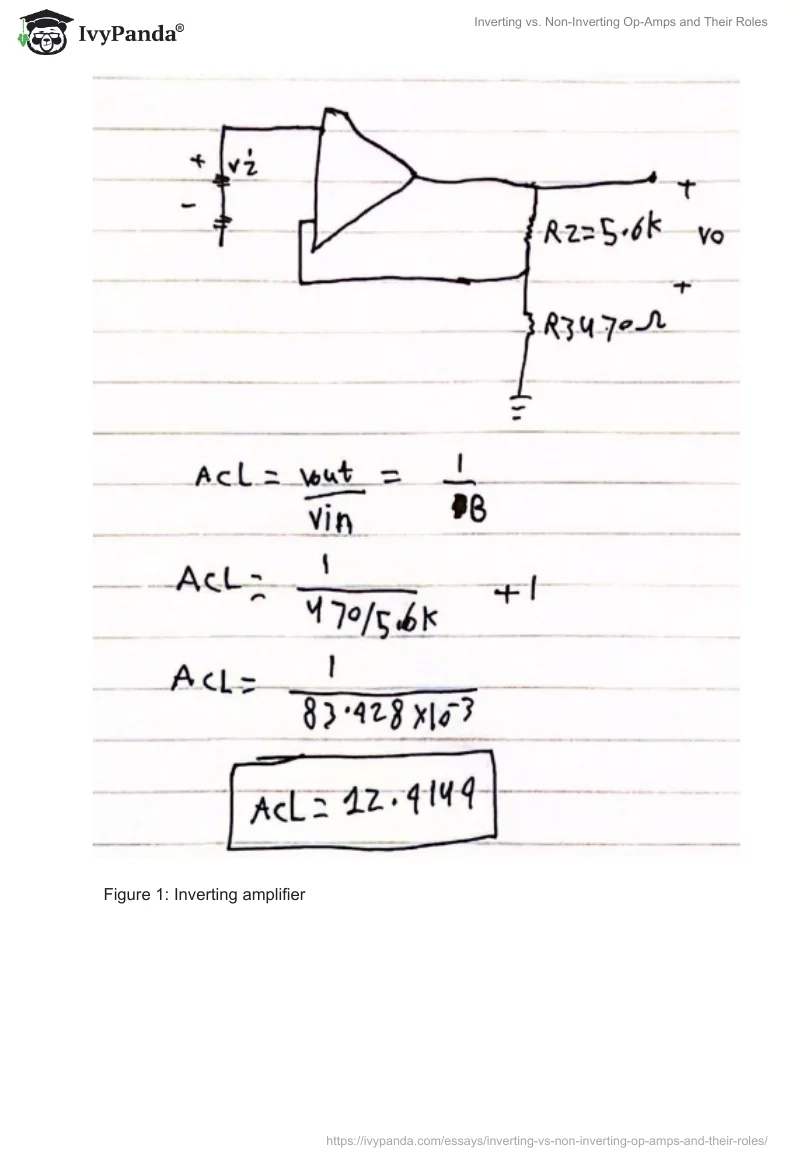 IvyPanda®
Inverting vs. Non-Inverting Op-Amps and Their Roles
+ vi
-
+
R2=5.6K vo
+
R3470Ω
ACL = vout/vin = 1/B
ACL = 1/470/5.6K +1
ACL = 1/83.928x10-3
ACL = 12.9149
Figure 1: Inverting amplifier
https://ivypanda.com/essays/inverting-vs-non-inverting-op-amps-and-their-roles/